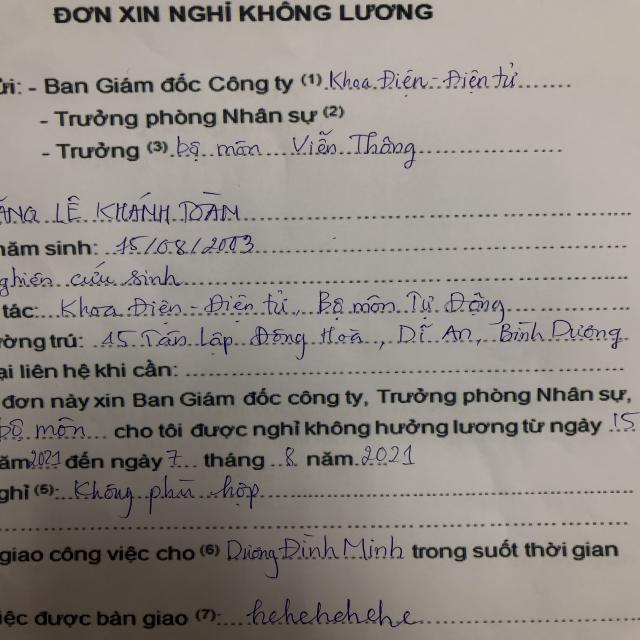 ĐƠN XIN NGHỈ KHÔNG LƯƠNG
ửi: - Ban Giám đốc Công ty (1) Khoa Điện - Điện tử
- Trưởng phòng Nhân sự (2)
- Trưởng (3) bộ môn Viễn Thông
ĂNG LÊ KHÁNH TOÀN
năm sinh: 15/08/2003
nghiên cứu sinh
tác: Khoa Điện - Điện tử, Bộ môn Tự Động
ường trú: 15 Tân Lập Đông Hoà, Dĩ An, Bình Dương
ại liên hệ khi cần:
đơn này xin Ban Giám đốc công ty, Trưởng phòng Nhân sự,
bộ môn cho tôi được nghỉ không hưởng lương từ ngày 15
năm 2021 đến ngày 7 tháng 8 năm 2021
nghỉ (5): Không phù hợp
giao công việc cho (6) Dương Đình Minh trong suốt thời gian
iệc được bàn giao (7): hehehehehe